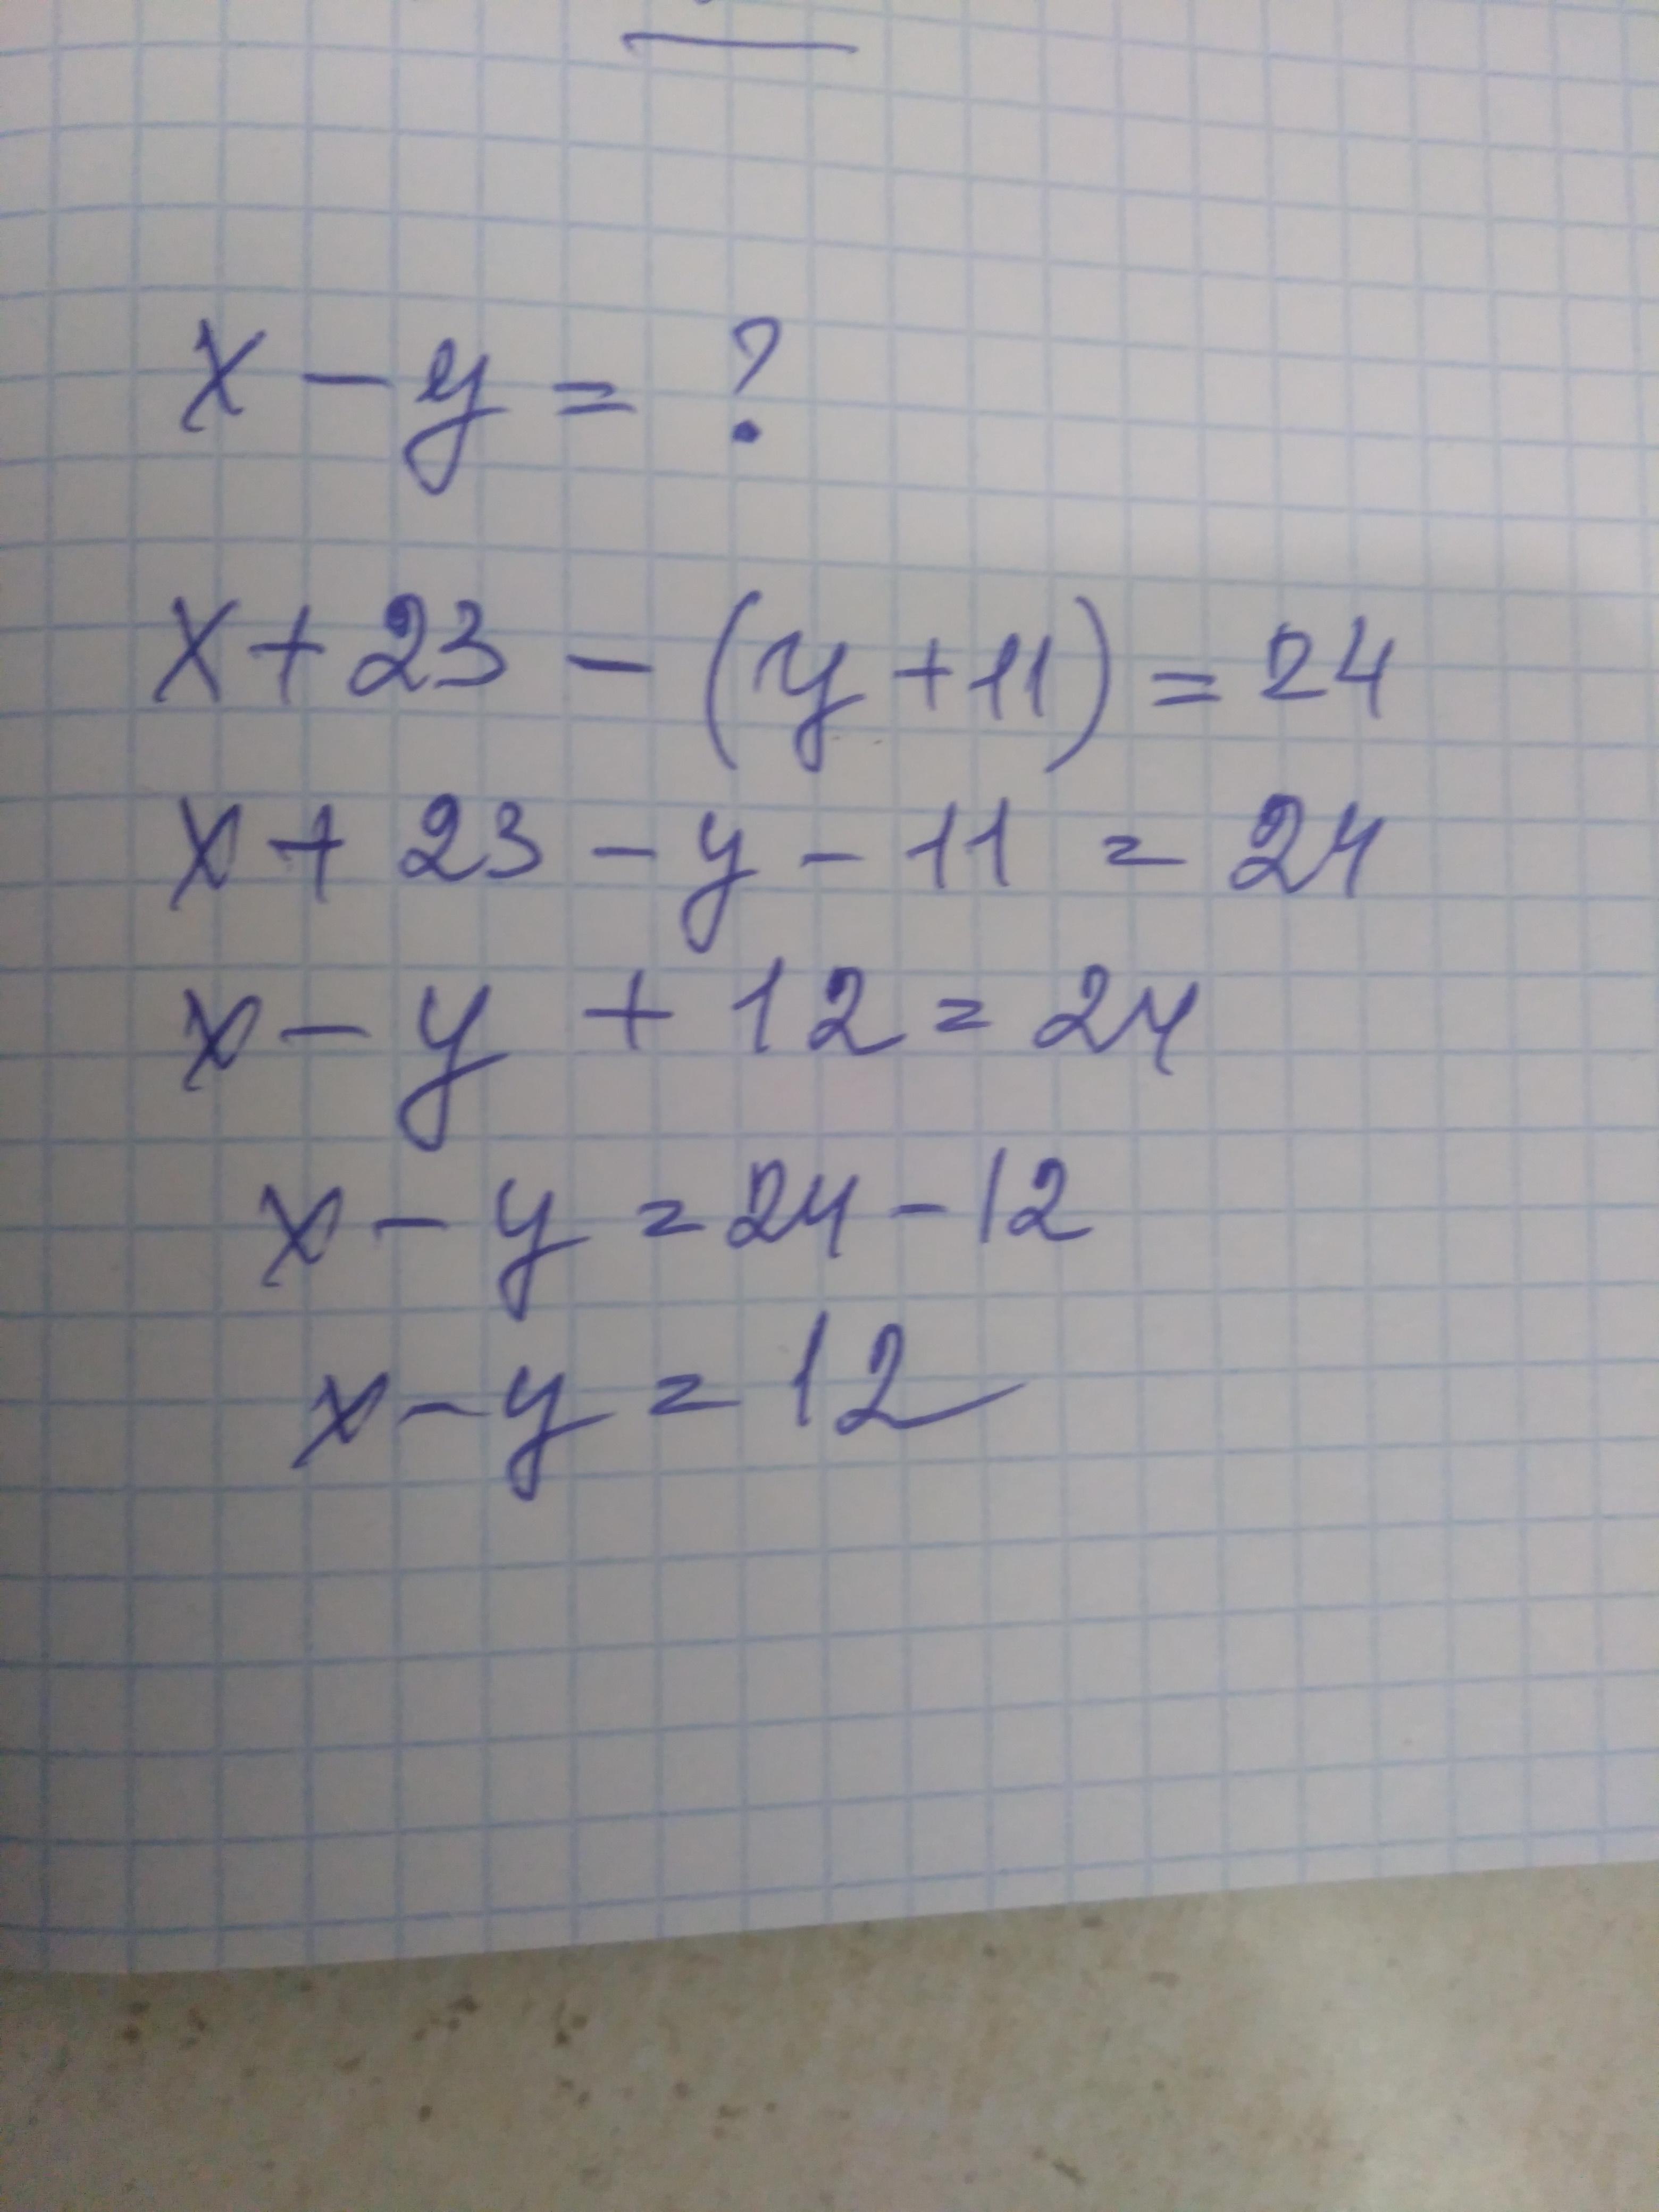 x - y = ?
x + 23 - (y + 11) = 24
x + 23 - y - 11 = 24
x - y + 12 = 24
x - y = 24 - 12
x - y = 12